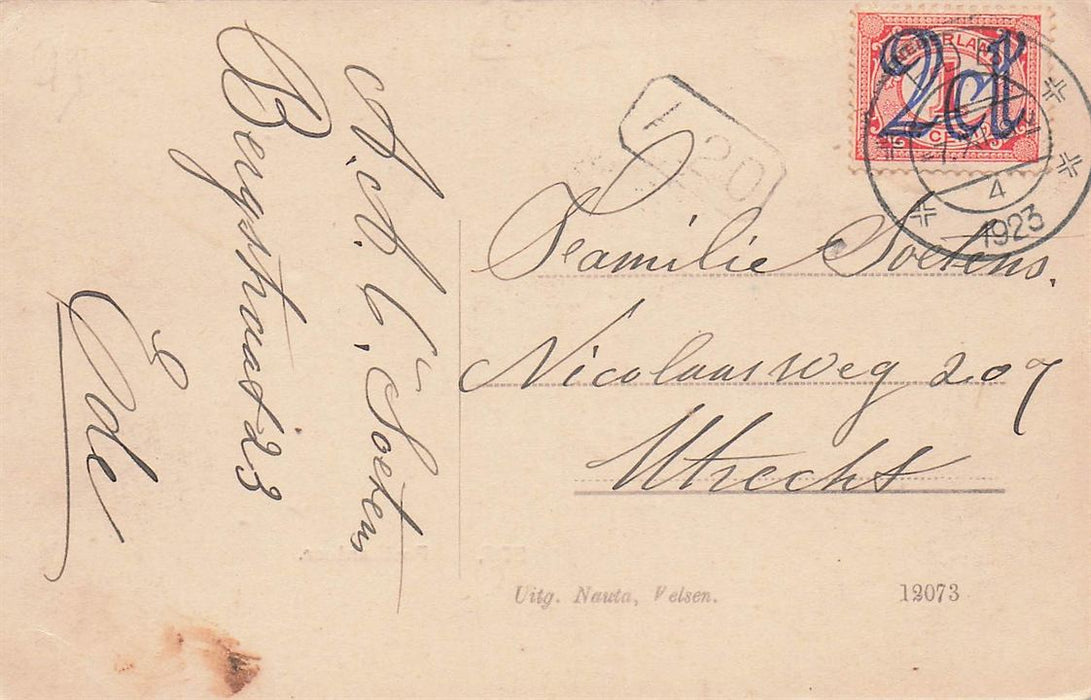 A. A. C. Soetens
Bergstraat 23
Ede
120
NEDERLAND
2 ct
1
CENT
4
1923
Familie Soetens.
Nicolaasweg 207
Utrecht
Uitg. Nauta, Velsen.
12073